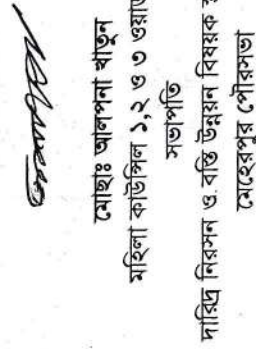 মোছাঃ আলপনা খাতুন
মহিলা কাউন্সিল ১,২ ও ৩ ওয়ার্ড
সভাপতি
দারিদ্র নিরসন ও বস্তি উন্নয়ন বিষয়ক
মেহেরপুর পৌরসভা